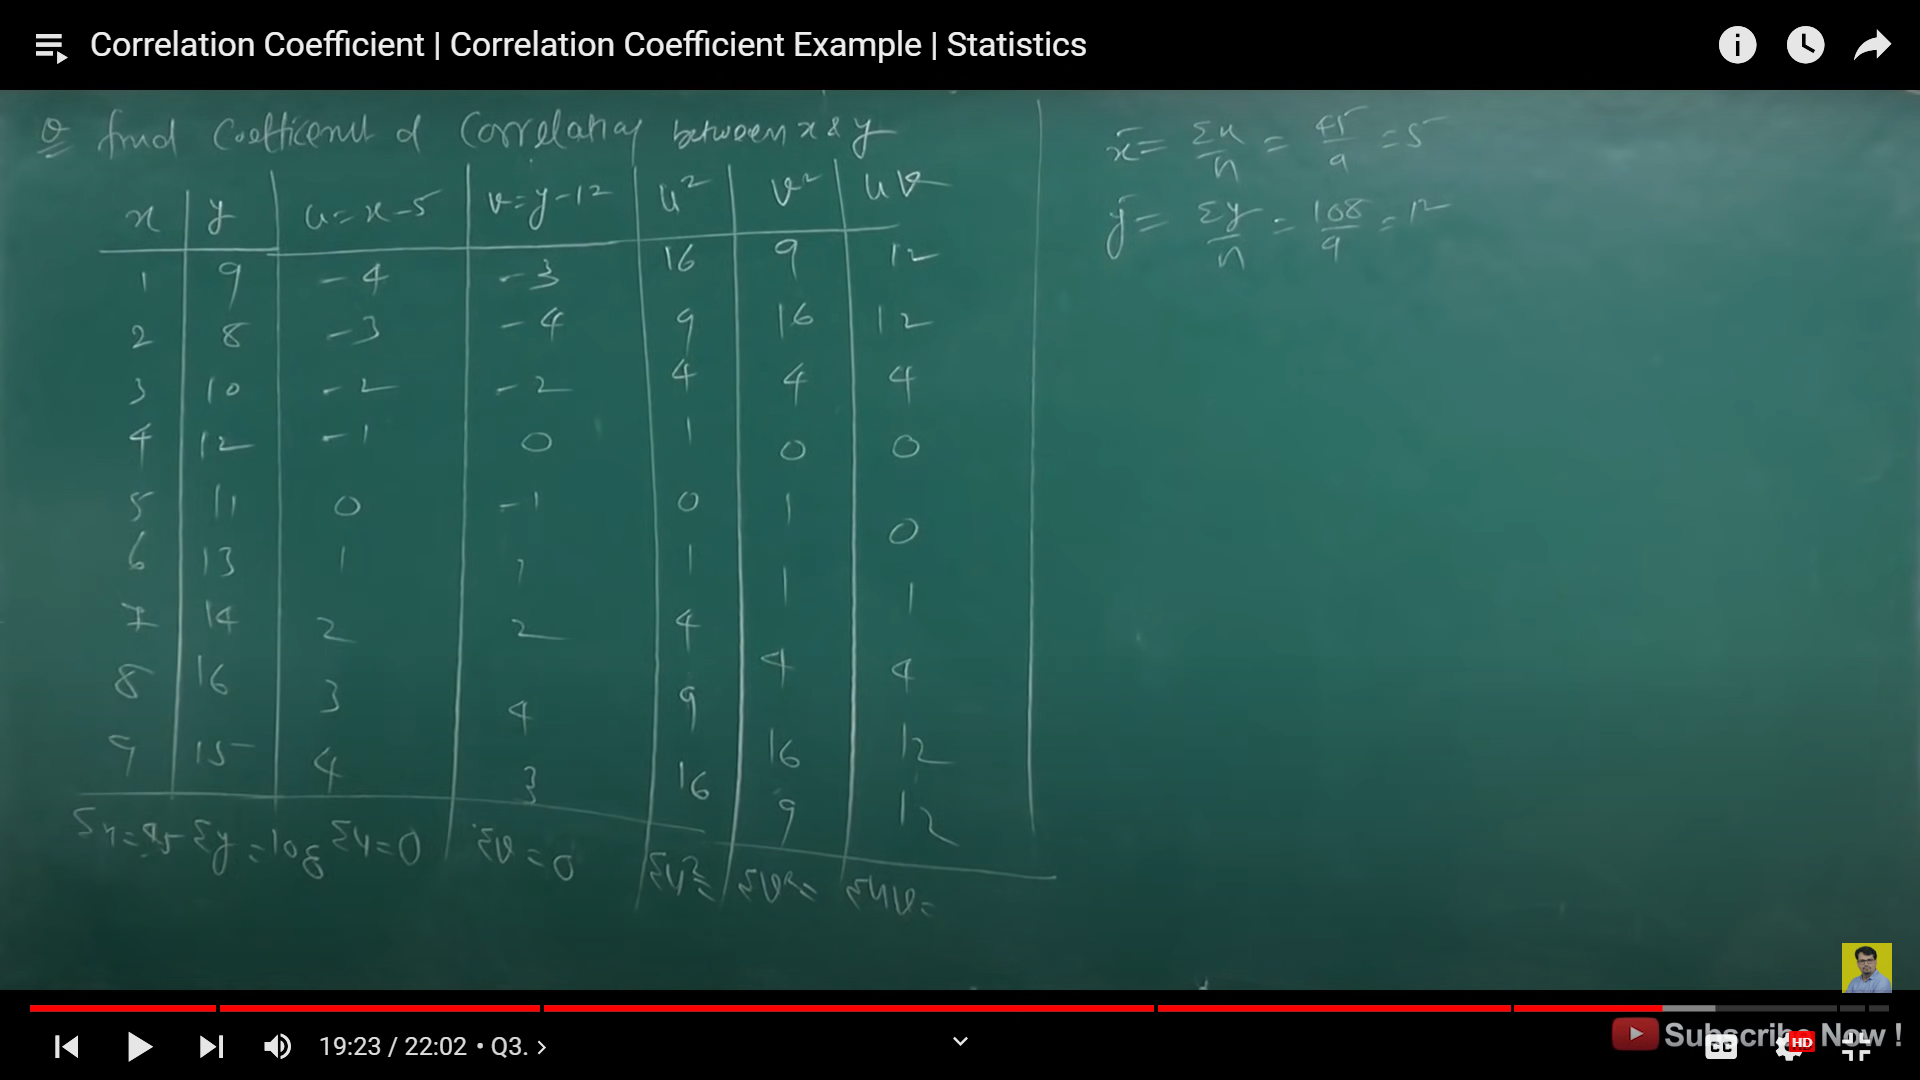 Correlation Coefficient | Correlation Coefficient Example | Statistics
Q find Coefficent of Correlation between x & y
x y u=x-5 v=y-12 u² v² uv
1 9 -4 -3 16 9 12
2 8 -3 -4 9 16 12
3 10 -2 -2 4 4 4
4 12 -1 0 1 0 0
5 11 0 -1 0 1 0
6 13 1 1 1 1 1
7 14 2 2 4 4 4
8 16 3 4 9 16 12
9 15 4 3 16 9 12
Σx=45 Σy=108 Σu=0 Σv=0 Σu²= Σv²= Σuv=
x̄ = Σx/n = 45/9 = 5
ȳ = Σy/n = 108/9 = 12
19:23 / 22:02 • Q3. >
Subscribe Now !
CC HD